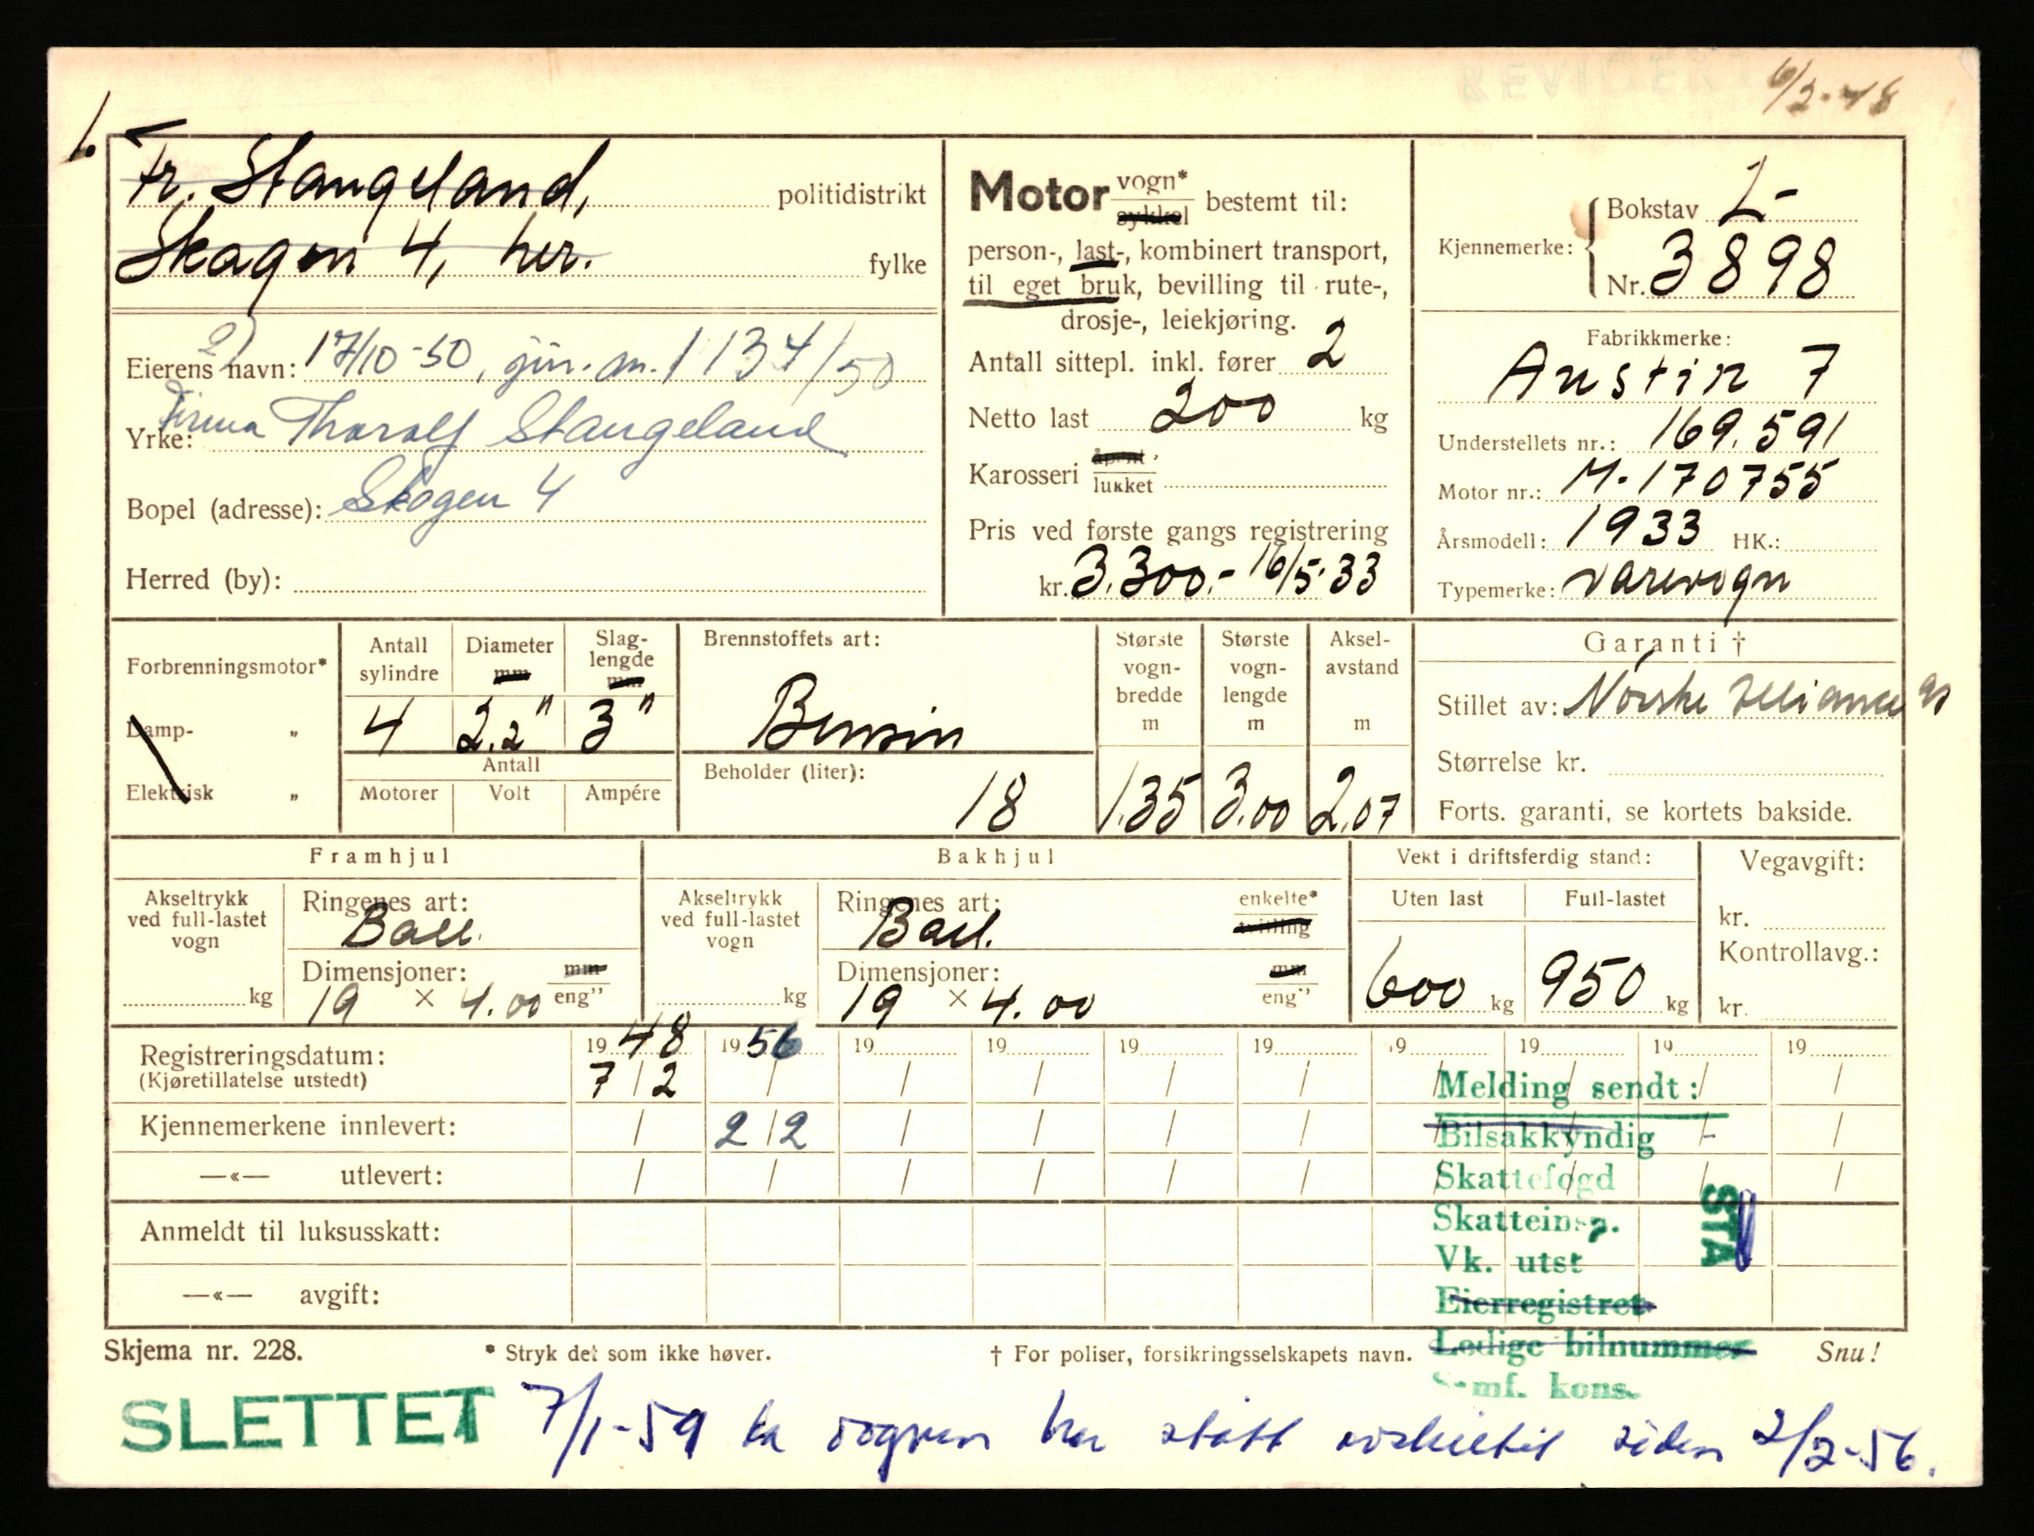 REVIDERT
6/2-48
1.
Fr. Stangeland, politidistrikt
Skagen 4, her. fylke
2) Eierens navn: 17/10-50, jnr. an. 1134/50
Yrke: Firma Thoralf Stangeland
Bopel (adresse): Skagen 4
Herred (by):
Motor vogn* sykkel bestemt til:
person-, last-, kombinert transport,
til eget bruk, bevilling til rute-,
drosje-, leiekjøring.
Antall sittepl. inkl. fører 2
Netto last 200 kg
Karosseri åpent lukket
Pris ved første gangs registrering
kr. 3.300.- 16/5-33
Kjennemerke: Bokstav L-
Nr. 3898
Fabrikkmerke:
Austin 7
Understellets nr.: 169.591
Motor nr.: M-170755
Årsmodell: 1933 HK.:
Typemerke: varevogn
Forbrenningsmotor*
Damp- „
Elektrisk „
Antall sylindre 4
Diameter mm 2.2"
Slaglengde mm 3"
Antall
Motorer Volt Ampére
Brennstoffets art:
Bensin
Beholder (liter): 18
Største vognbredde m 1.35
Største vognlengde m 3.00
Akselavstand m 2.07
Garanti †
Stillet av: Norske Alliance
Størrelse kr.
Forts. garanti, se kortets bakside.
Framhjul
Akseltrykk ved full-lastet vogn
kg
Ringenes art:
Ball.
Dimensjoner: mm eng"
19 × 4.00
Bakhjul
Akseltrykk ved full-lastet vogn
kg
Ringenes art: enkelte* tvilling
Ball.
Dimensjoner: mm eng"
19 × 4.00
Vekt i driftsferdig stand:
Uten last Full-lastet
600 kg 950 kg
Vegavgift:
kr.
Kontrollavg.:
kr.
19 48 19 56 19 19 19 19 19 19 19 19
Registreringsdatum: 7/2
(Kjøretillatelse utstedt)
Kjennemerkene innlevert: / 2/2
—«— utlevert:
Anmeldt til luksusskatt:
—«— avgift:
Melding sendt:
Bilsakkyndig -
Skattefogd
Skatteinsp.
Vk. utst
Eierregistret
Ledige bilnummer
Samf. kons.
STA
Skjema nr. 228. * Stryk det som ikke høver. † For poliser, forsikringsselskapets navn. Snu!
SLETTET 7/1-59 da vognen har stått avskiltet siden 2/2-56.